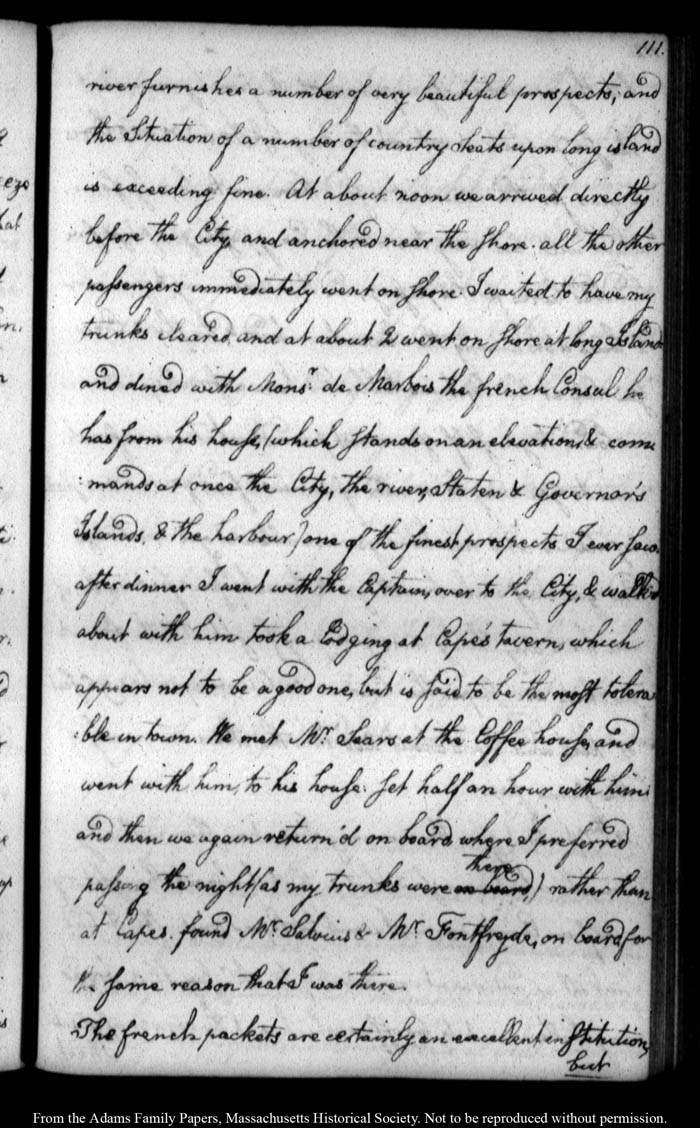 111.
river furnishes a number of very beautiful prospects, and
the Situation of a number of country seats upon long island
is exceeding fine. At about noon we arrived directly
before the City, and anchored near the shore. all the other
passengers immediately went on shore. I waited to have my
trunks cleared, and at about 2 went on shore at long Island
and dined with Monsr. de Marbois the french Consul he
has from his house, (which stands on an elevation, & com
:mands at once the City, the river, Staten & Governor's
Islands, & the harbour) one of the finest prospects I ever saw.
after dinner I went with the Captain, over to the City, & walked
about with him took a Lodging at Cape's tavern, which
appears not to be a good one, but is said to be the most tolera
:ble in town. We met Mr. Sears at the Coffee house, and
went with him, to his house: set half an hour with him
and then we again return'd on board where I preferred
there
passing the night (as my trunks were on board,) rather than
at Capes. found Mr. Salvius & Mr. Fontfreyde, on board for
the same reason that I was there.
The french packets are certainly an excellent institution,
but
From the Adams Family Papers, Massachusetts Historical Society. Not to be reproduced without permission.